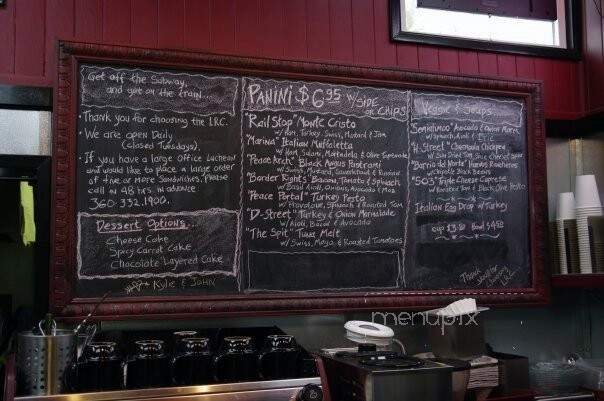 Get off the Subway,
and get on the train...
Thank you for choosing the I.R.C.
We are open Daily
(closed Tuesdays).
If you have a large Office Luncheon
and would like to place a large order
of five or more Sandwiches, Please
call in 48 hrs. in advance.
360.332.1900.
Dessert Options
Cheese Cake
Spicy Carrot Cake
Chocolate Layered Cake
Kylie & John
PANINI $6.95 w/ SIDE
or CHIPS
"Rail Stop" Monte Cristo
w/ Ham, Turkey, Swiss, Mustard & Jam
"Marina" Italian Muffeletta
w/ Ham, Salami, Mortadella & Olive Tapenade
"Peace Arch" Black Angus Pastrami
w/ Swiss, Mustard, Sauerkraut & Russian
"Border Rights" Banana, Tomato & Spinach
w/ Basil Aioli, Onions, Avocado & Moz
"Peace Portal" Turkey Pesto
w/ Provolone, Spinach & Roasted Tom
"D-Street" Turkey & Onion Marmalade
w/ Aioli, Bacon & Avocado
"The Spit" Tuna Melt
w/ Swiss, Mayo, & Roasted Tomatoes
Veggie & Soups
"Semiahmoo" Avocado & Onion Marm.
"H. Street" Chermoula Chickpea
w/ Sun Dried Tom,
"Barrio del Norte" Humm, Rancheros
w/ Chipotle Black Beans
"503" Triple Cheese Caprese
w/ Roasted Tom & Black Olive Pesto
Italian Egg Drop w/ Turkey
cup 3.50 Bowl $4.50
Thank
I.R.C.
menupix